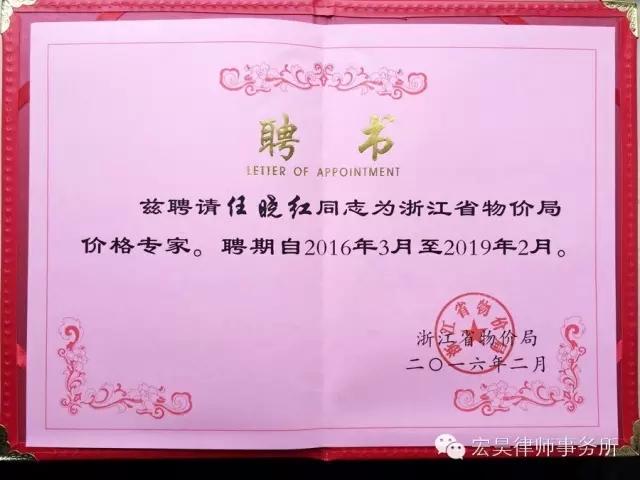 聘书
LETTER OF APPOINTMENT
兹聘请任晓红同志为浙江省物价局
价格专家。聘期自2016年3月至2019年2月。
浙江省物价局
浙江省物价局
二〇一六年二月
宏昊律师事务所